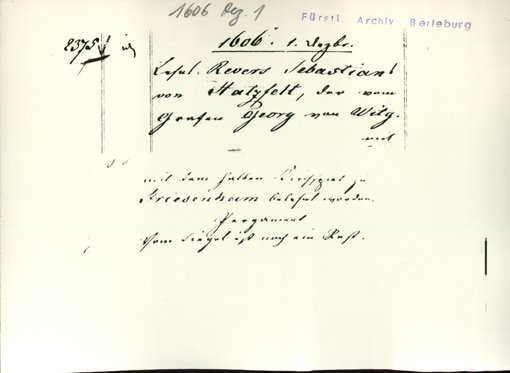 1606 Dez. 1
Fürstl. Archiv Berleburg
2375
1606. 1. Dezbr.
Lehns-Revers Sebastians
von Hatzfelt, der vom
Grafen Georg von Witg.
mit
mit dem halben Kirchspiel zu
Friesenham belehnt worden.
Pergament
Vom Siegel ist noch ein Rest.